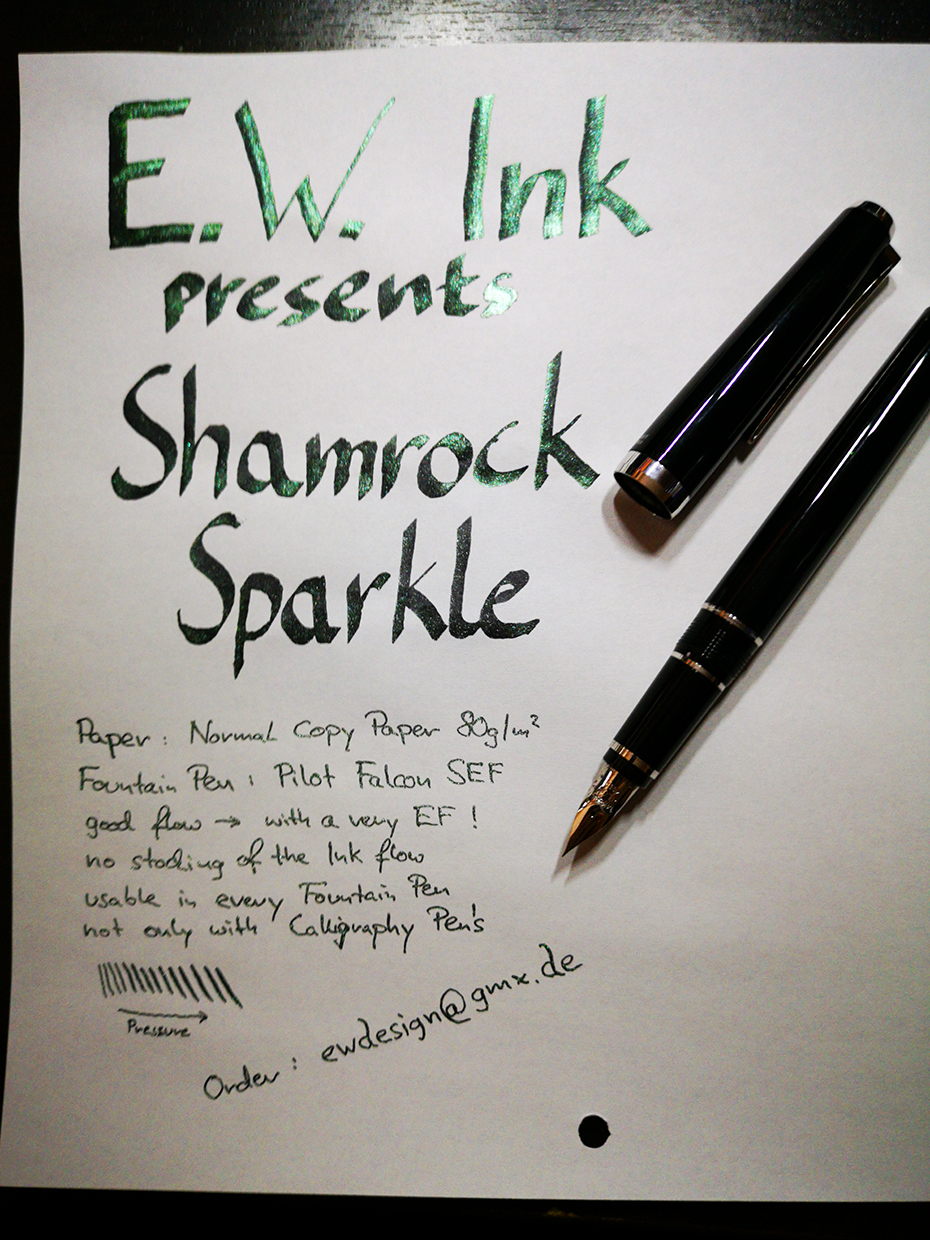 E.W. Ink
presents
Shamrock
Sparkle
Paper: Normal Copy Paper 80g/m²
Fountain Pen: Pilot Falcon SEF
good flow → with a very EF!
no stocking of the Ink flow
usable in every Fountain Pen
not only with Calligraphy Pen's
Pressure
Order: ewdesign@gmx.de